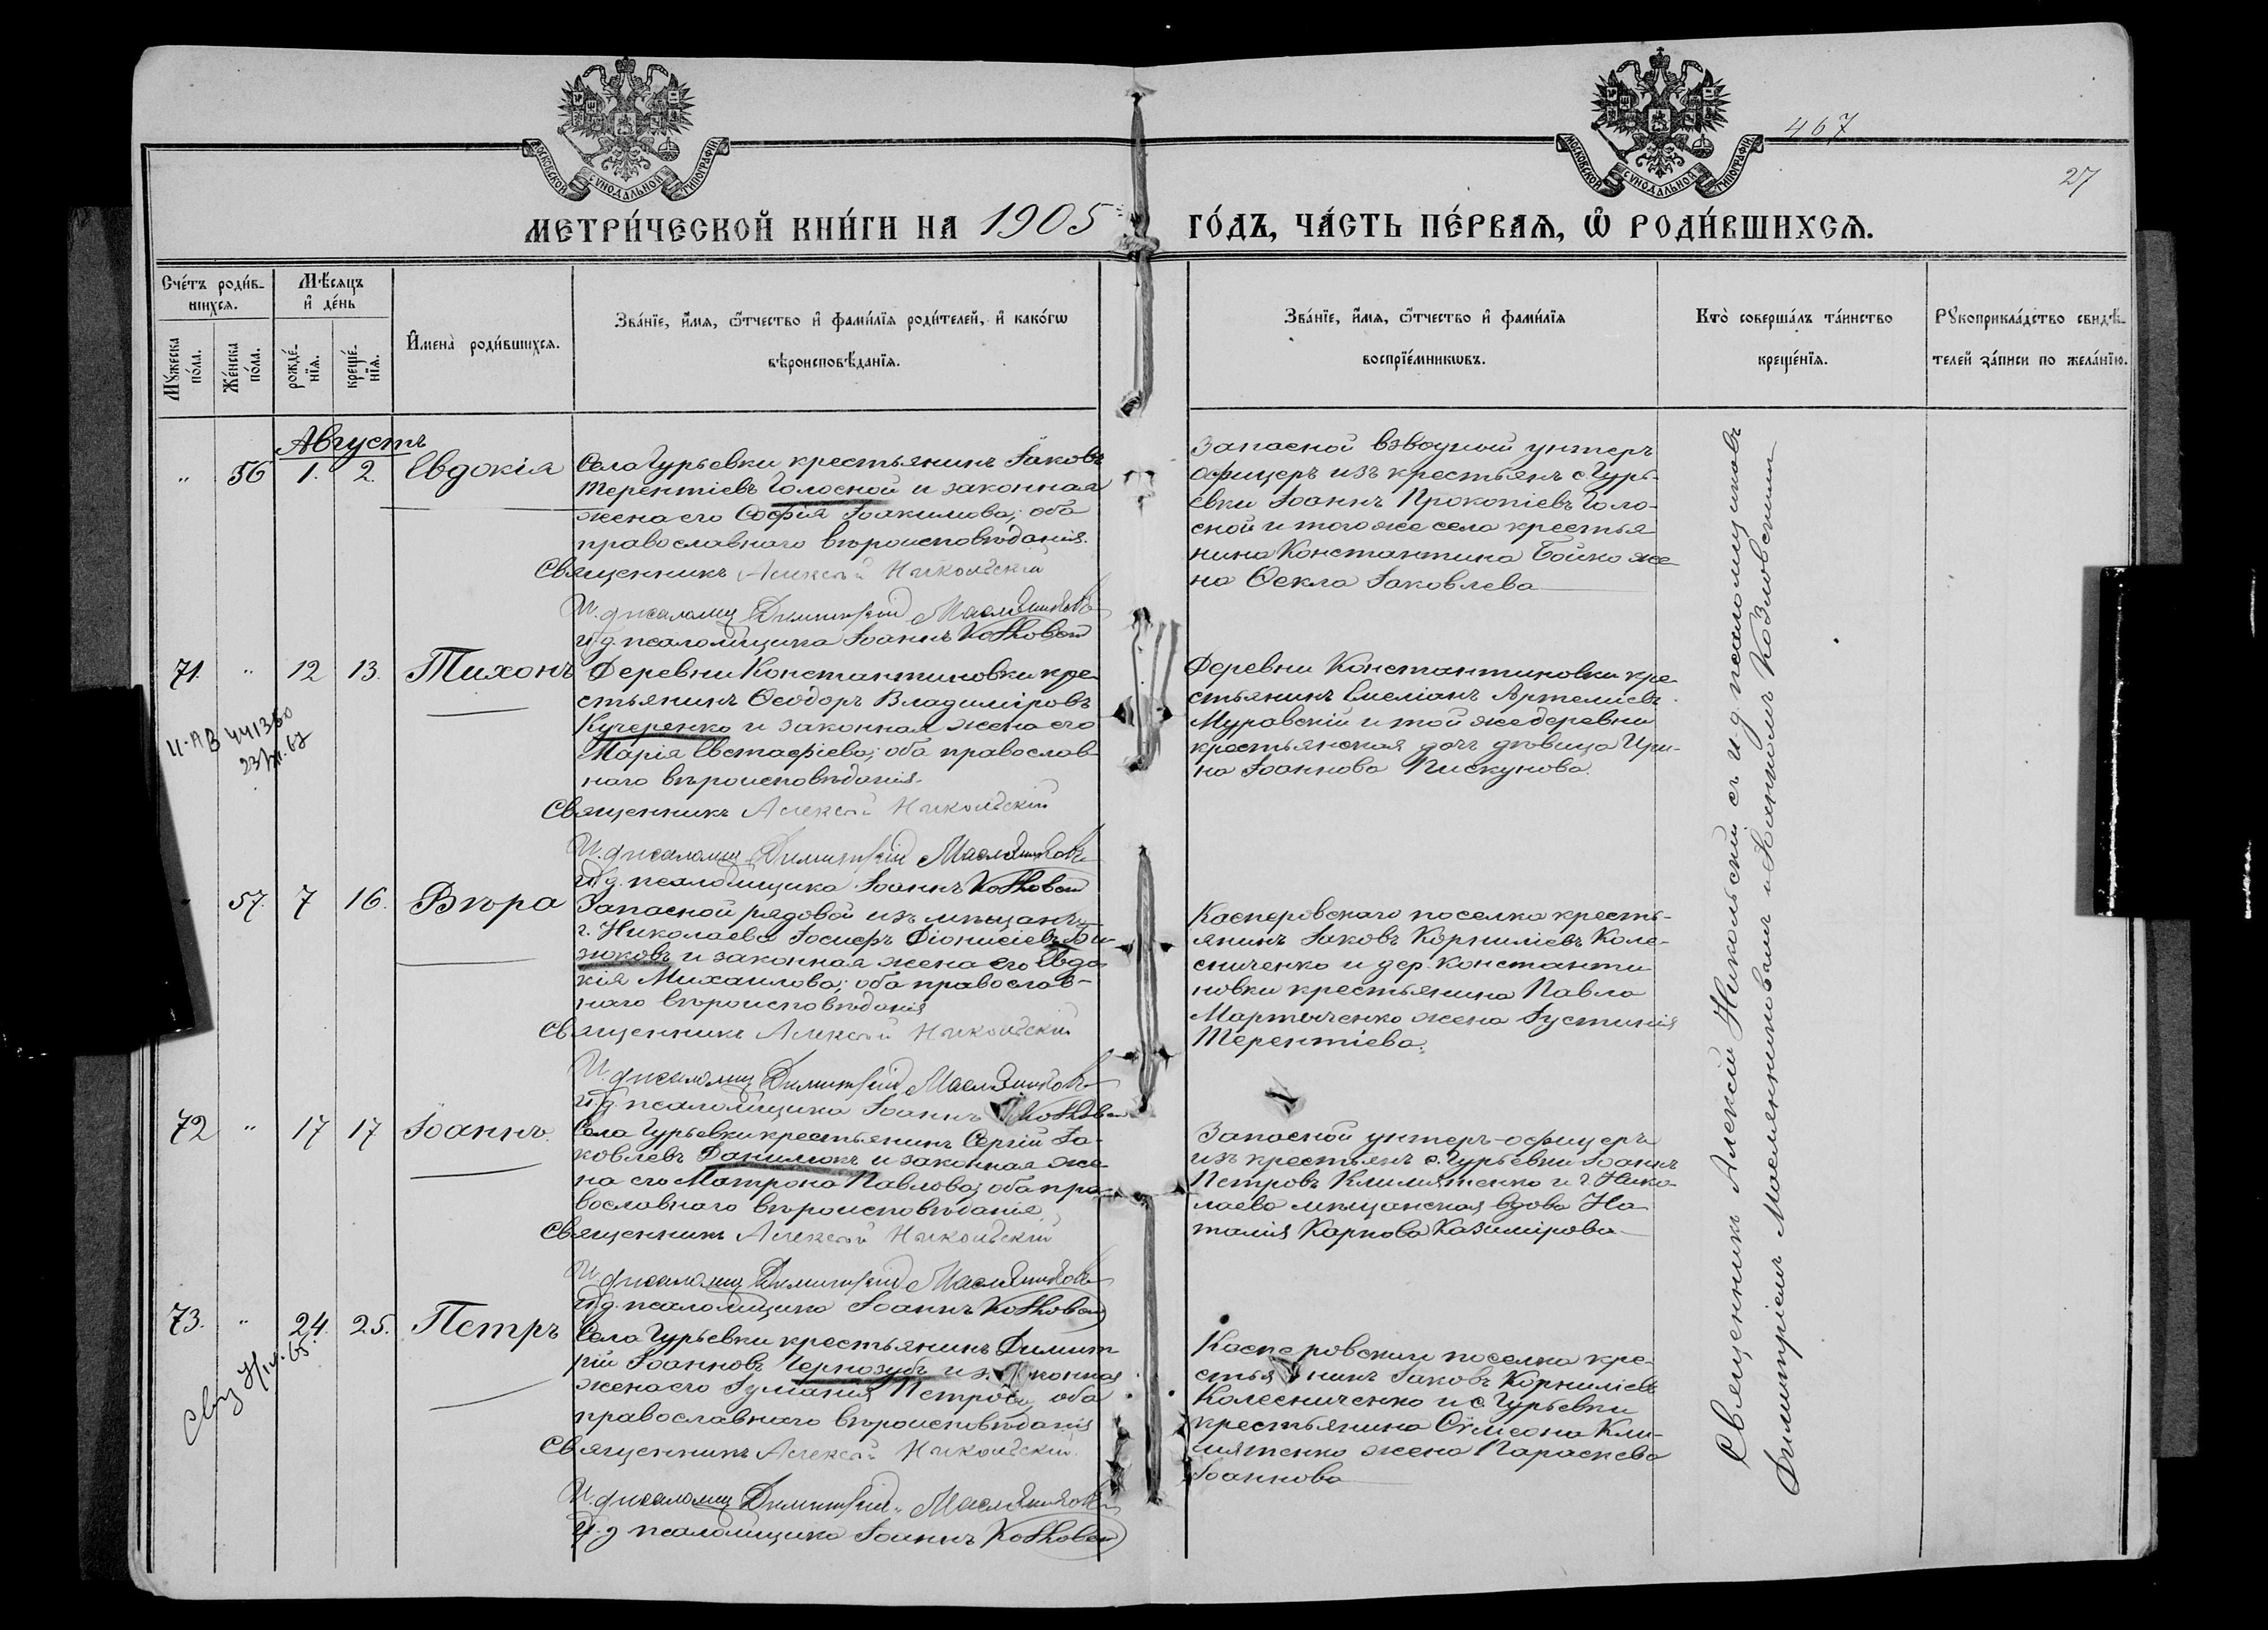 467
27
МОСКОВСКОЙ СУНОДАЛЬНОЙ ТИПОГРАФІИ
МОСКОВСКОЙ СУНОДАЛЬНОЙ ТИПОГРАФІИ
МЕТРИ́ЧЕСКОЙ КНИ́ГИ НА 1905 ГО́ДЪ, ЧА́СТЬ ПЕ́РВАѦ, Ѽ РОДИ́ВШИХСѦ.
Сче́тъ роди́в-
шихсѧ.
Мѣ́сѧцъ
и҆ де́нь
Мꙋ́жеска
по́ла.
Же́нска
по́ла.
рожде́-
нїѧ.
креще́-
нїѧ.
И҆мена̀ роди́вшихсѧ.
Зва́нїе, и҆́мѧ, ѻ҆́тчество и҆ фами́лїѧ роди́телей, и҆ како́гѡ
вѣроисповѣ́данїѧ.
Зва́нїе, и҆́мѧ, ѻ҆́тчество и҆ фами́лїѧ
воспрїе́мникѡвъ.
Кто̀ соверша́лъ та́инство
креще́нїѧ.
Рꙋкоприкла́дство свидѣ́-
телей за́писи по жела́нїю.
Августъ
" 56 1. 2. Евдокія
Села Гурьевки крестьянинъ Іаковъ
Терентіевъ Голосной и законная
жена его Софія Іоакимова; оба
православнаго вѣроисповѣданія.
Священникъ Алексѣй Никольскій
И. д. псаломщ. Димитрій Маслянниковъ
и. д. псаломщика Іоаннъ Козловскій
Запасной взводный унтеръ
офицеръ изъ крестьянъ с. Гурь-
евки Іоаннъ Прокопіевъ Голо-
сной и того же села крестья
нина Константина Бойко же
на Ѳекла Іаковлева
71. " 12 13. Тихонъ
Деревни Константиновки кре
стьянинъ Ѳеодоръ Владиміровъ
Кучеренко и законная жена его
Марія Евстафіева; оба православ
наго вѣроисповѣданія.
Священникъ Алексѣй Никольскій
И. д. псаломщ. Димитрій Маслянниковъ
и. д. псаломщика Іоаннъ Козловскій
Деревни Константиновки кре
стьянинъ Емеліанъ Артеміевъ
Муравскій и той же деревни
крестьянская дочь дѣвица Ири-
на Іоаннова Пискунова.
II-АВ 441360
57. 7 16. Вѣра
Запасной рядовой изъ мѣщанъ
г. Николаева Іосифъ Діонисіевъ Би-
зюковъ и законная жена его Евдо
кія Михаилова; оба православ-
наго вѣроисповѣданія
Священникъ Алексѣй Никольскій
И. д. псаломщ. Димитрій Маслянниковъ
и. д. псаломщика Іоаннъ Козловскій
Касперовскаго поселка кресть-
янинъ Іаковъ Корниліевъ Коле-
сниченко и дер. Константи
новки крестьянина Павла
Мартыченко жена Іустинія
Терентіева.
72 " 17 17 Іоаннъ.
Села Гурьевки крестьянинъ Сергій Іа-
ковлевъ Данилюкъ и законная же-
на его Матрона Павлова; оба пра-
вославнаго вѣроисповѣданія
Священникъ Алексѣй Никольскій
И. д. псаломщ. Димитрій Маслянниковъ
и. д. псаломщика Іоаннъ Козловскій
Запасной унтеръ-офицеръ
изъ крестьянъ с. Гурьевки Іоаннъ
Петровъ Климятенко и г. Нико-
лаева мѣщанская вдова На
талія Карпова Казимірова
73. " 24. 25. Петръ
Села Гурьевки крестьянинъ Димит
рій Іоанновъ Чернозубъ и законная
жена его Іуліанія Петрова; оба
православнаго вѣроисповѣданія
Священникъ Алексѣй Никольскій
И. д. псаломщ. Димитрій Маслянниковъ
и. д. псаломщика Іоаннъ Козловскій
Касперовскаго поселка кре-
стьянинъ Іаковъ Корниліевъ
Колесниченко и с. Гурьевки
крестьянина Сѵмеона Кли-
мятенко жена Параскева
Іоаннова
Священникъ Алексій Никольскій съ и. д. псаломщиковъ
Димитріемъ Маслянниковымъ и Іоанномъ Козловскимъ